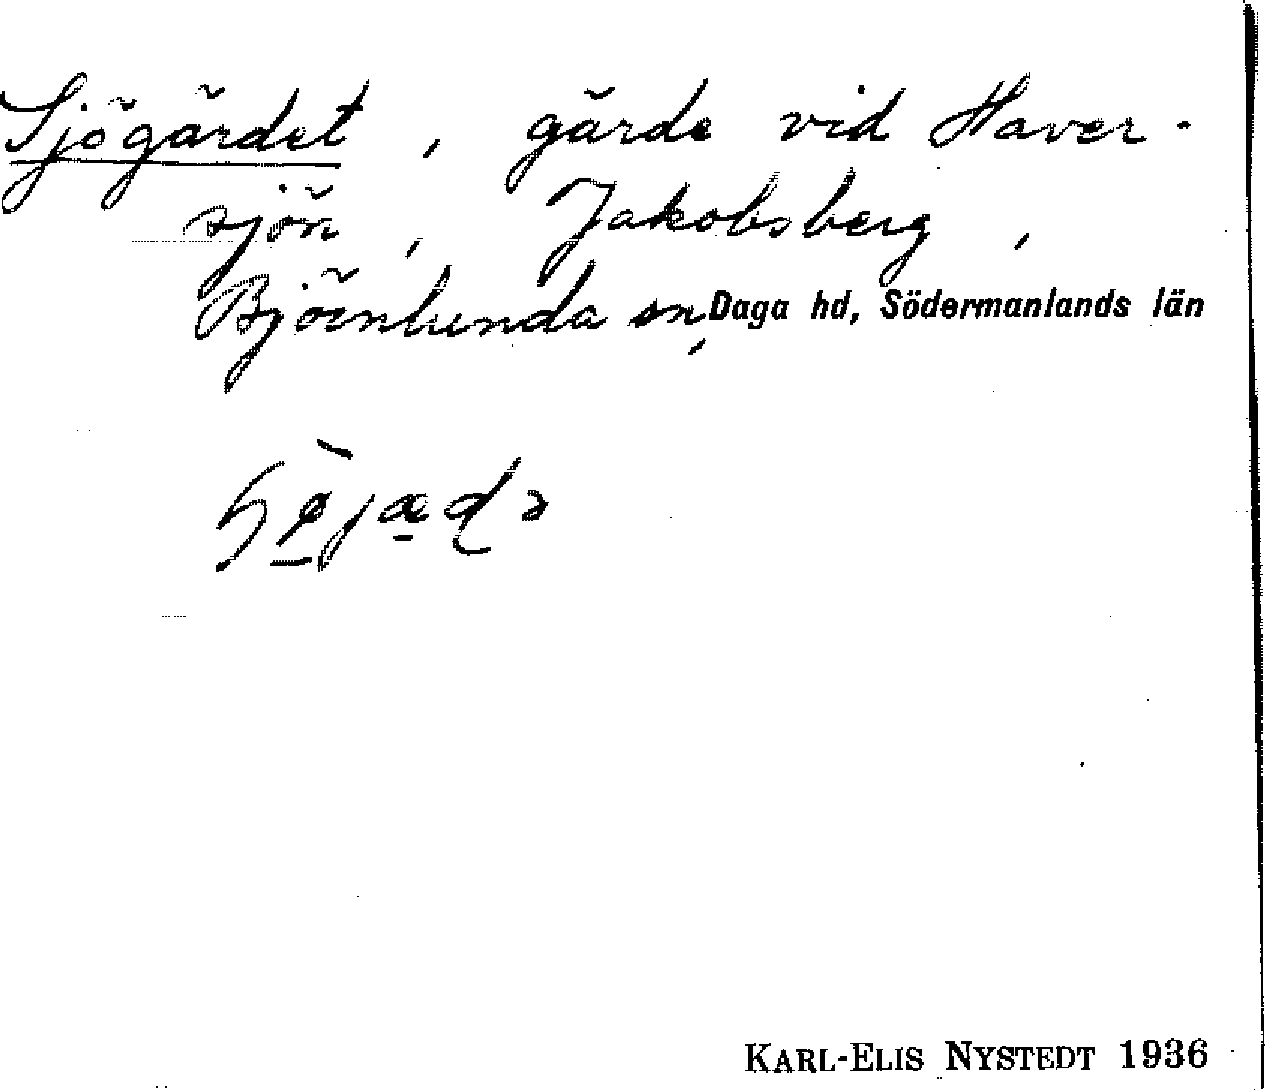 Sjögärdet, gärde vid Haver-
sjön, Jakobsberg,
Björnlunda sn, Daga hd, Södermanlands län
KARL-ELIS NYSTEDT 1936